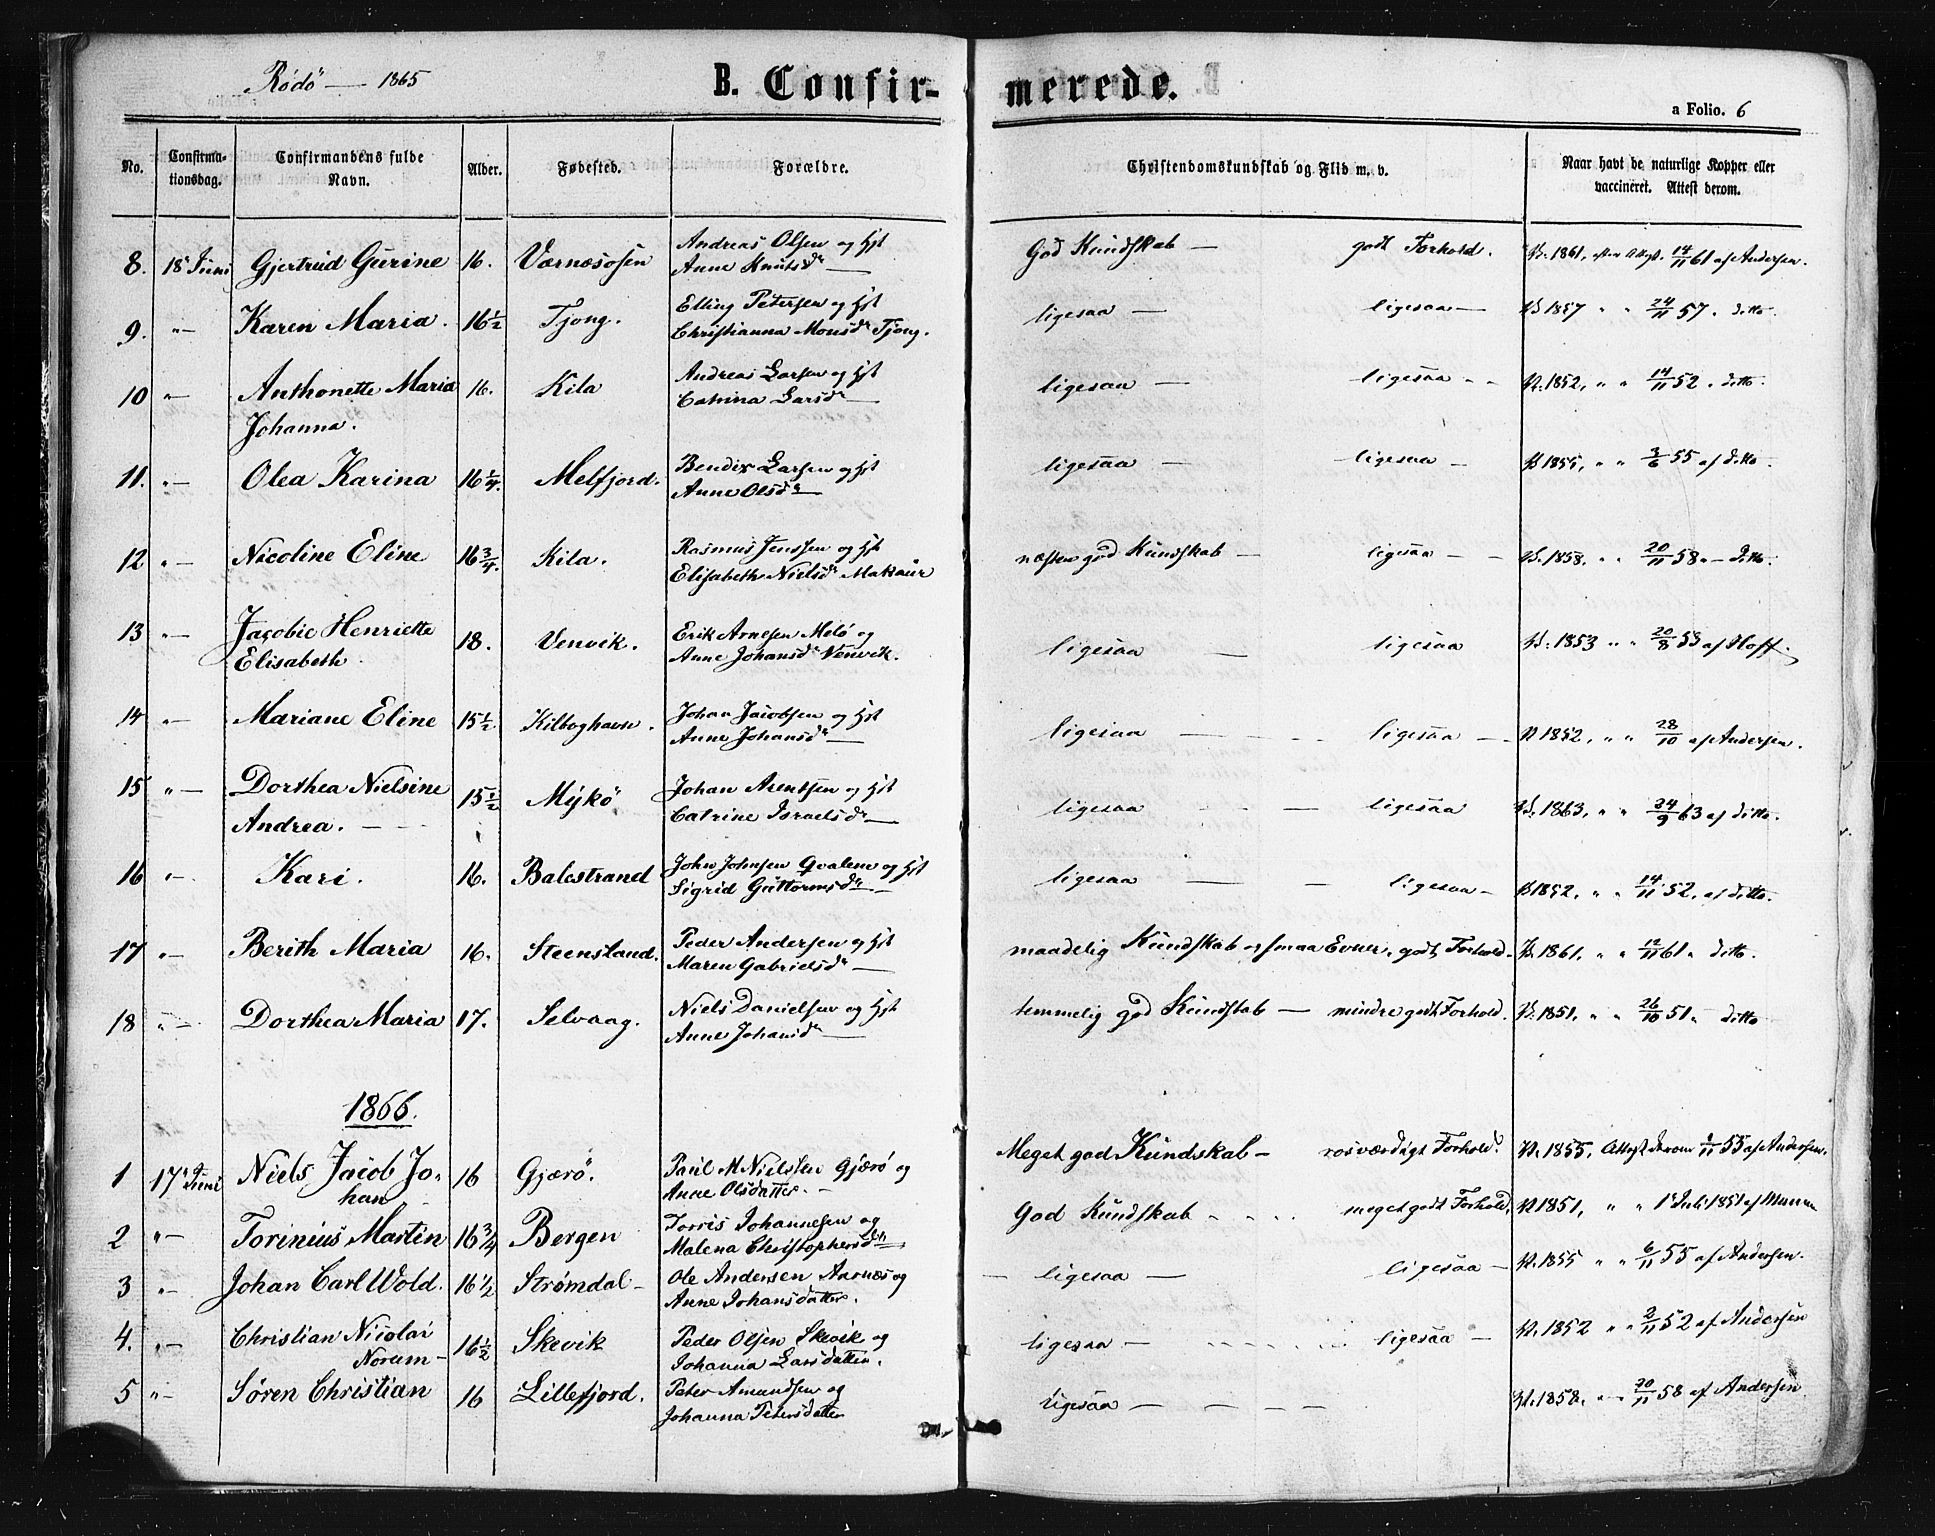 Rödö — 1865
B. Confir- merede.
a Folio. 6
No. Confirma-tionsdag. Confirmandens fulde Navn. Alder. Fødested. Forældre. Christendomskundskab og Flid m. v. Naar havt de naturlige Kopper eller vaccineret. Attest derom.
8. 18 Juni Gjertrud Gurine 16. Værnæsosen Andreas Olsen og Hst Anne Knutsdr — God Kundskab — godt Forhold. V. 1861, efter Attest. 14/11 61 af Andersen.
9. "— Karen Maria. 16 1/2 Tjong. Elling Petersen og Hst Christianna Monsdr Tjong. ligesaa — ligesaa — V 1857 " " 24/11 57 " ditto.
10 "— Anthonette Maria Johanna. 16. Kila Andreas Larsen og Hst Catrina Larsdr — ligesaa — ligesaa - - V. 1852, " " 14/11 52 " ditto.
11. "— Olea Karina 16 1/4. Melfjord. Bendix Larsen og Hst Anne Olsdr — ligesaa — ligesaa — V 1855, " " 3/6 55 af ditto.
12 "— Nicoline Eline 16 3/4. Kila. Rasmus Jenssen og Hst Elisabeth Nielsdr Makaur næsten god Kundskab — ligesaa — - V. 1858. " " 20/11 58 " — ditto.
13 "— Jacobie Henriette Elisabeth. 18. Venvik. Erik Arnesen Melö og Anne Johansdr Venvik. ligesaa — ligesaa V. 1853 " " 20/8 53 af Hoff.
14 "— Mariane Eline 15 1/2. Kilboghavn. Johan Jacobsen og Hst Anne Johansdr — ligesaa — - - - ligesaa — - V 1852, " " 28/10 af Andersen.
15 "— Dorthea Nielsine Andrea. — 15 1/2 Mykö Johan Arentsen og Hst Catrine Israelsdr — ligesaa - — ligesaa V. 1863, " " 24/9 63 af ditto.
16 "— Kari. 16. Balestrand John Johnsen Qvalene og Hst Sigrid Guttormsdr — ligesaa — - ligesaa — V 1852, " " 14/11 52, af ditto.
17 "— Berith Maria 16. Steensland. Peder Andersen og Hst Maren Gabrielsdr — maadelig Kundskab og smaa Evner, godt Forhold. V. 1861, " " 12/11 61 " ditto.
18 "— Dorthea Maria 17. Selvaag. Niels Danielsen og Hst Anne Johansdr — temmelig god Kundskab — mindre godt Forhold. V. 1851, " " 26/10 51 " ditto
1866.
1 17de Juni Niels Jacob Jo-han — 16 Gjærö. Paul M Nielsen Gjærö og Anne Olsdatter. — Meget god Kundskab — rosværdigt Forhold. V. 1855, Attest derom 55 af Andersen.
2 "— Torinius Martin 16 3/4 Bergen Torris Johannesen og Malena Christophersdtr God Kundskab - - - - meget godt Forhold, V 1851, " " 1 Juli 1851 af
3 "— Johan Carl Wold. 16 1/2 Strømdal — Ole Andersen Aarnæs og Anne Johansdatter. — ligesaa — ligesaa — V. 1855 " " 6/11 55 af Andersen.
4. "— Christian Nicolai Norum — 16 1/2 Skevik Peder Olsen Skevik og Johanna Larsdatter. ligesaa — - - - - - ligesaa — V. 1852 " " 2/11 52 af Andersen
5 "— Sören Christian 16 Lillefjord. Peter Amundsen og Johanna Petersdatter ligesaa — — — — V. 1858. 20/11 58 af Andersen